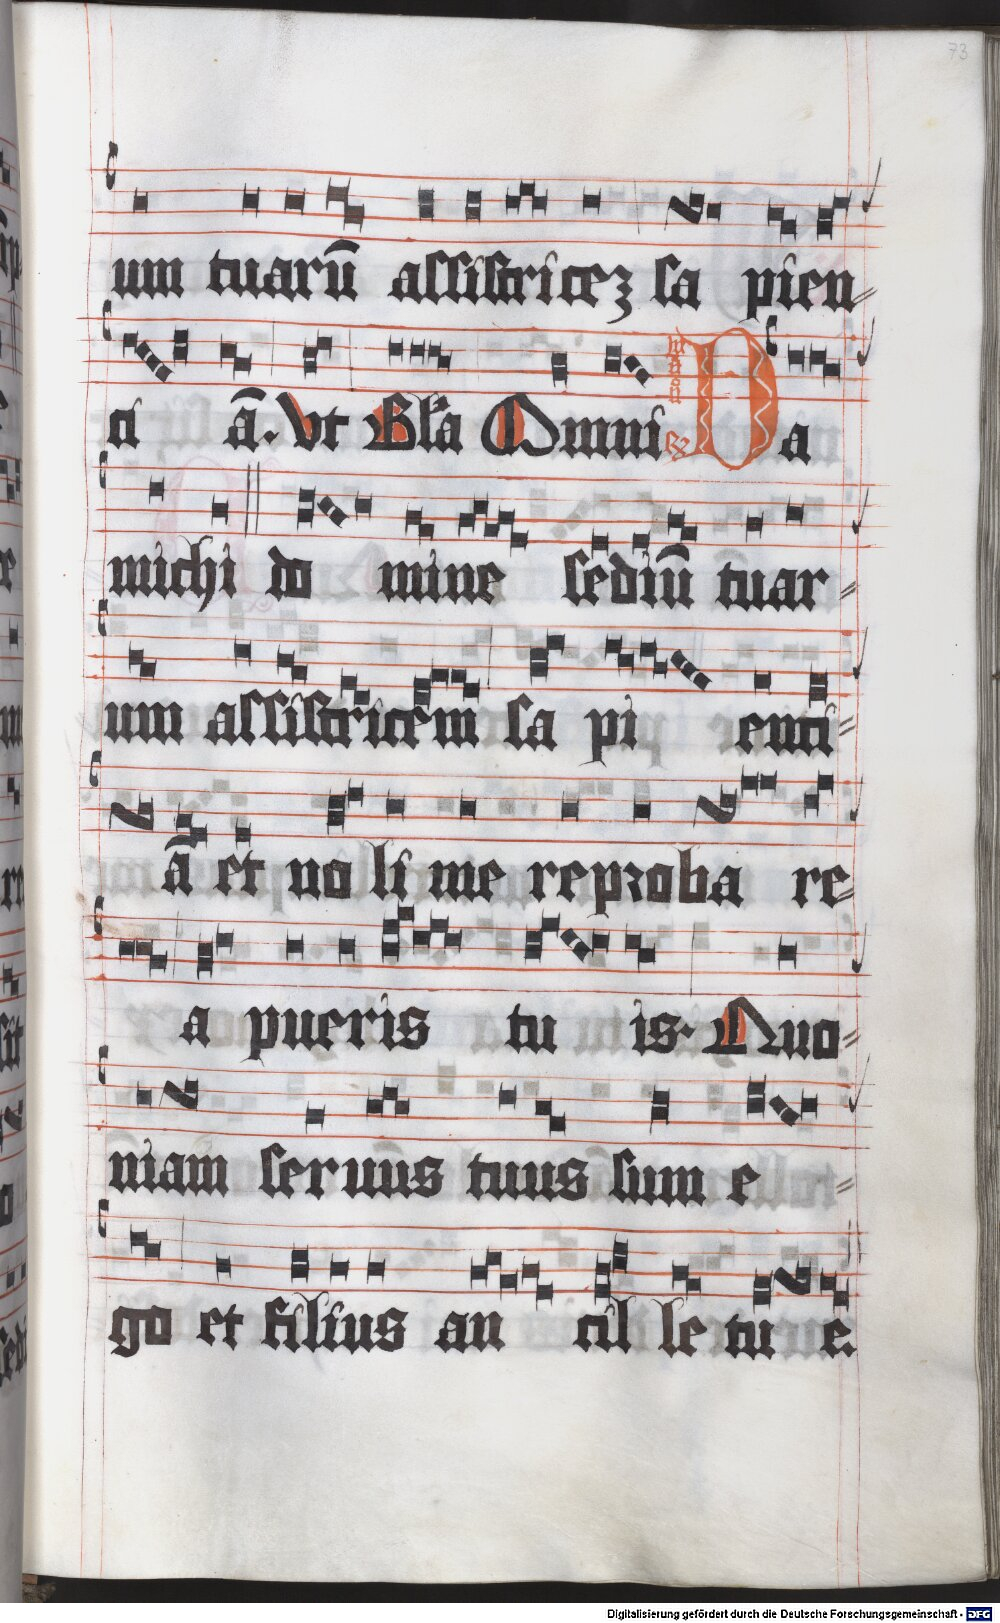 73
um tuarū assistricez sa pien⸗
ci ā. Vt Bła Omni ℟ Da
michi do mine sediū tuar⸗
um assistricem sa pi enti⸗
ā et no li me reproba re⸗
a pueris tu is. Quo⸗
niam seruus tuus sum e⸗
go et filius an cil le tu e.
Digitalisierung gefördert durch die Deutsche Forschungsgemeinschaft - DFG